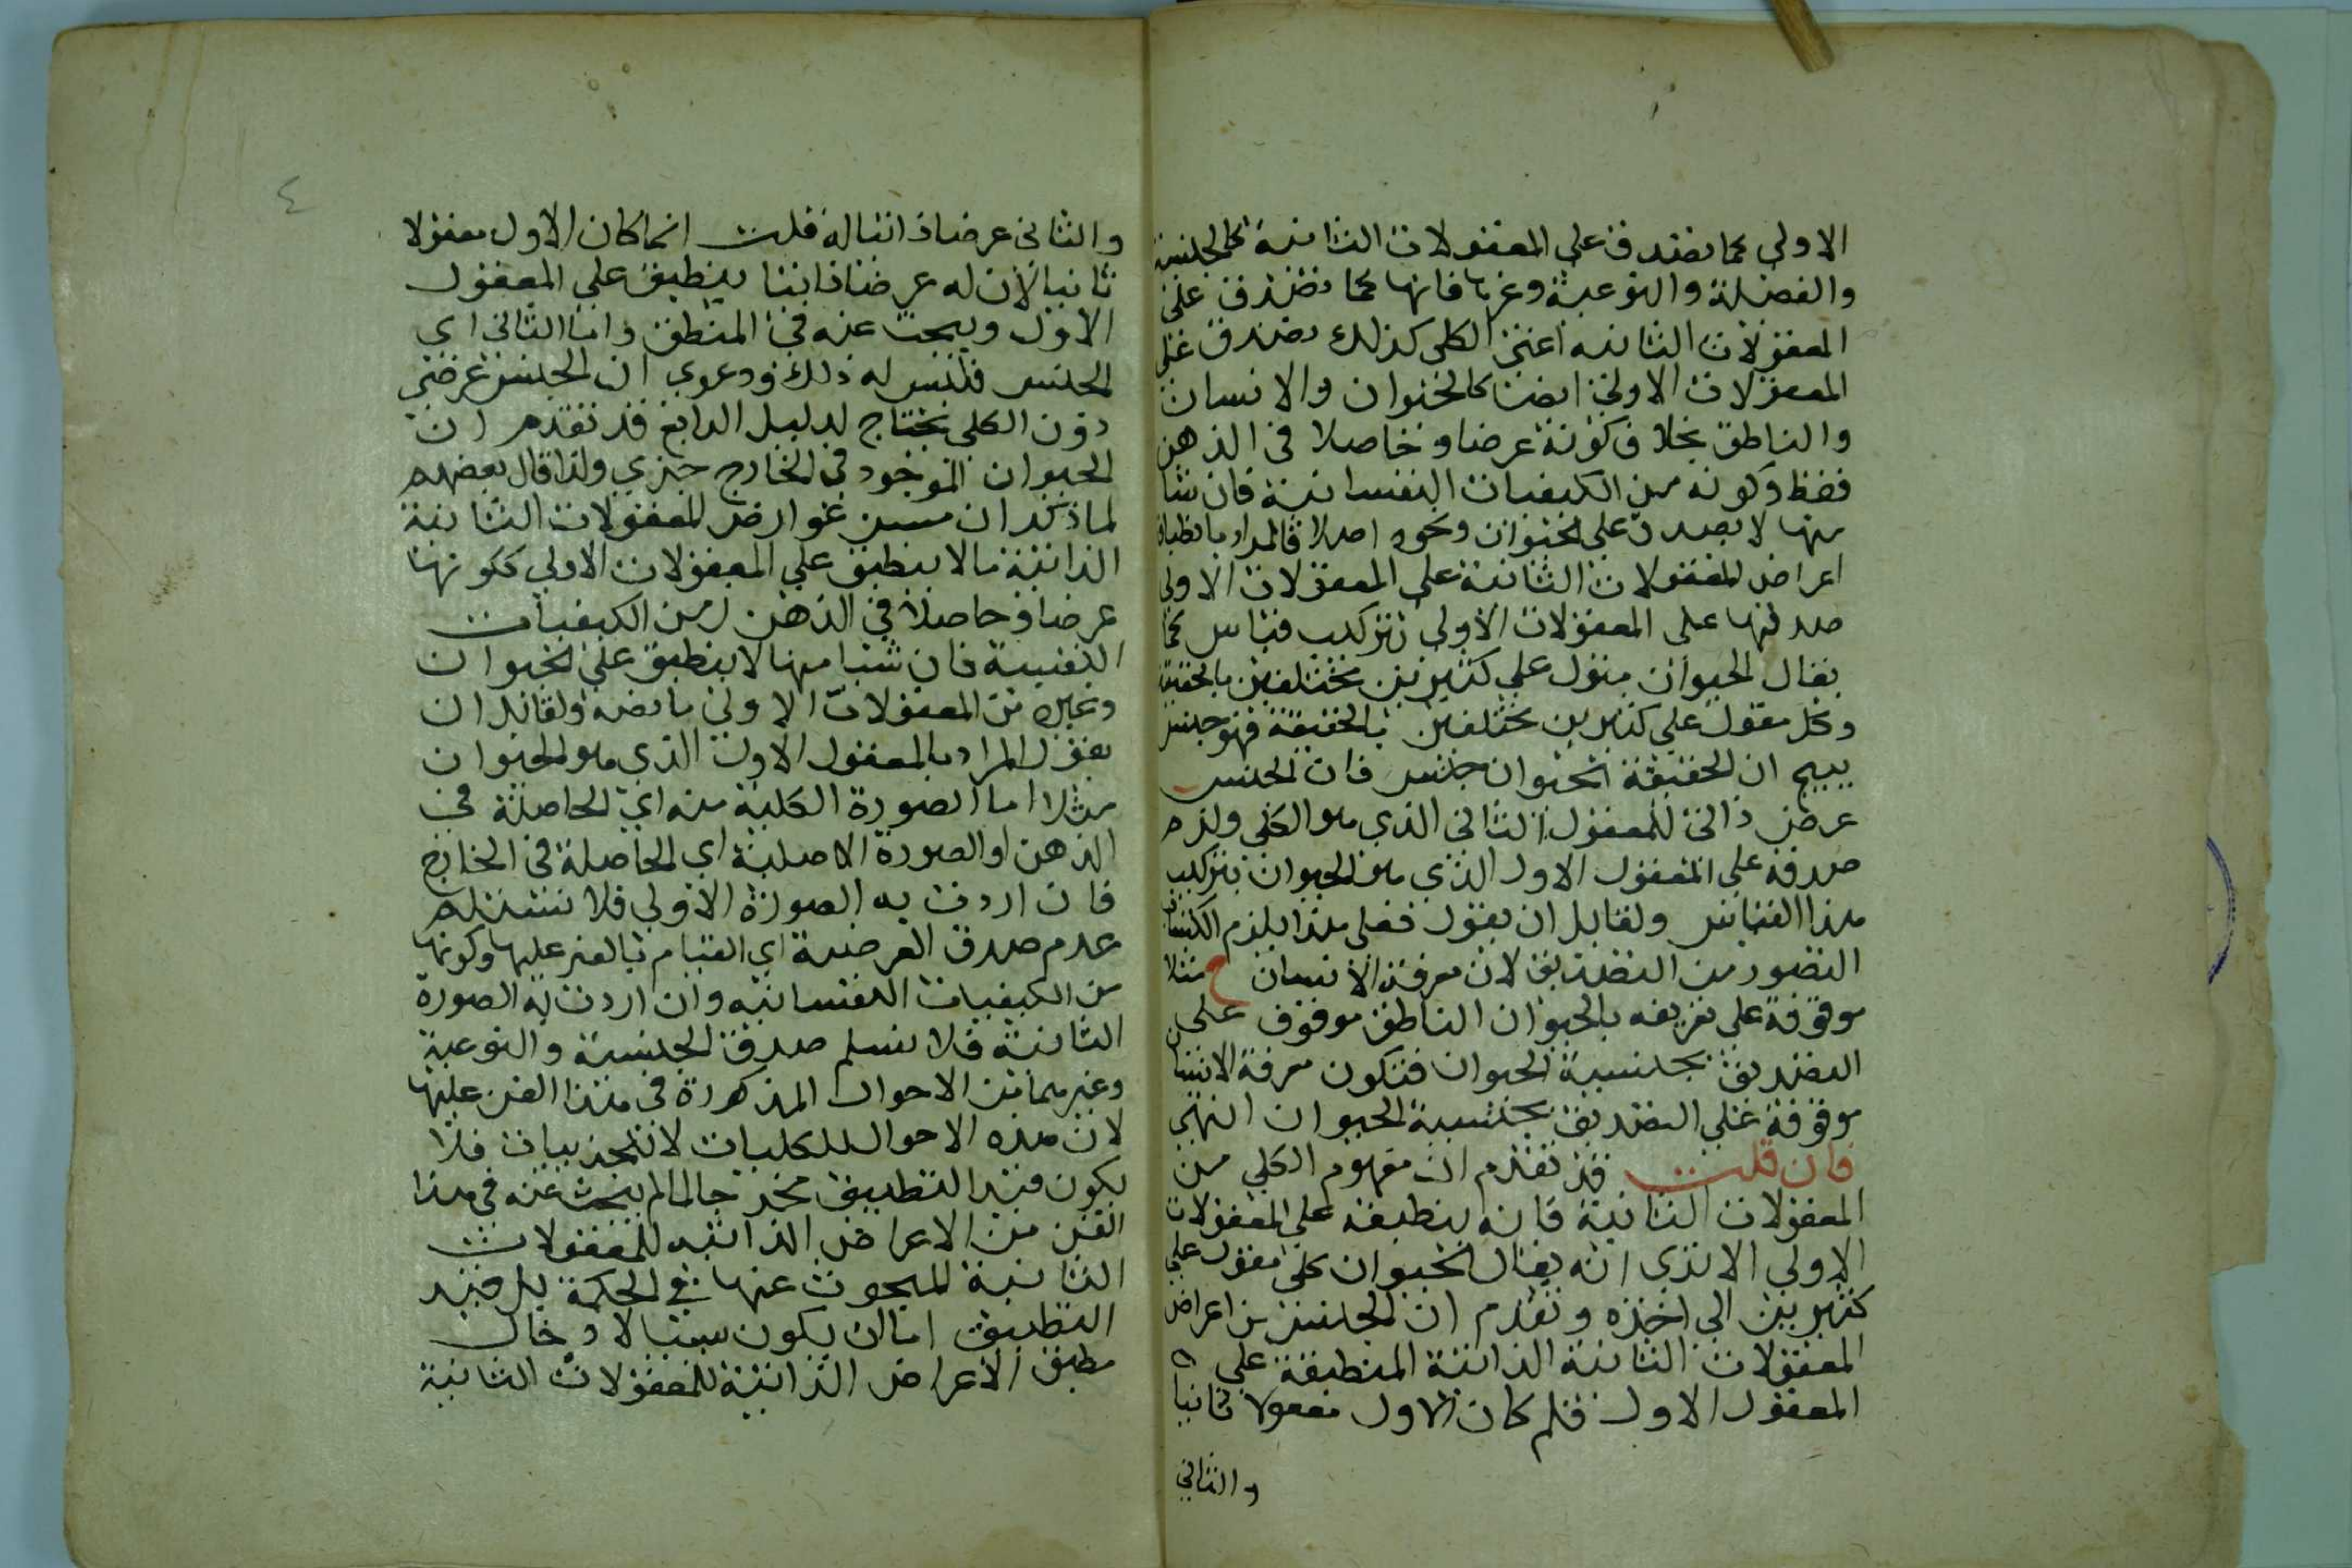 الاولى كما تصدق على المعقولات الثانية كالجنسية
والفصلية والنوعية وغيرها فانها كما تصدق على
المعقولات الثانيه اعنى الكلى كذلك تصدق على
المعقولات الاولى ايضا كالحيوان والانسان
والناطق بخلاف كونه عرضا وحاصلا فى الذهن
فقط وكونه من الكيفيات النفسانية فان شيا
منها لا يصدق على الحيوان ونحوه اصلا فالمراد بانطباق
اعراض المعقولات الثانية على المعقولات الاولى
صدقها على المعقولات الاولى بتركيب قياس كما
يقال الحيوان مقول على كثيرين مختلفين بالحقيقة
وكل مقول على كثيرين مختلفين بالحقيقة فهو جنس
ينتج ان الحقيقة الحيوان جنس فان الجنس
عرض ذاتى للمعقول الثانى الذي هو الكلى ولزم
صدقه على المعقول الاول الذي هو الحيوان بتركيب
هذا القياس ولقايل ان يقول فعلى هذا يلزم اكتساب
التصور من التصديق لان معرفة الانسان ح مثلا
موقوفة على تعريفه بالحيوان الناطق موقوف على
التصديق بجنسية الحيوان فتكون معرفة الانسان
موقوفة على التصديق بجنسية الحيوان انتهى
فان قلت قد تقدم ان مفهوم الكلى من
المعقولات الثانية فانه ينطبق على المعقولات
الاولى الا ترى انه يقال الحيوان كلى مقول على
كثيرين الى اخره وتقدم ان الجنس من اعراض
المعقولات الثانية الذاتية المنطبقة على
المعقول الاول فلم كان الاول معقولا ثانيا
والثاني
٤
والثانى عرضا ذاتيا له قلت انما كان الاول معقولا
ثانيا لان له عرضا ذاتيا ينطبق على المعقول
الاول ويبحث عنه فى المنطق واما الثانى اي
الجنس فليس له ذلك ودعوي ان الجنس عرضى
دون الكلى يحتاج لدليل الرابع قد تقدم ان
الحيوان الموجود فى الخارج جزي ولذا قال بعضهم
لما ذكر ان من عوارض المعقولات الثانية
الذاتية مالا ينطبق على المعقولات الاولى ككونها
عرضا وحاصلا فى الذهن ومن الكيفيات
النفسية فان شيا منها لا ينطبق على الحيوان
وغيره من المعقولات الاولى ما نصه ولقايل ان
يقول المراد بالمعقول الاول الذي هو الحيوان
مثلا اما الصورة الكلية منه اي الحاصلة فى
الذهن او الصورة الاصلية اي الحاصلة فى الخارج
فان اردت به الصورة الاولى فلا نسلم
عدم صدق العرضية اي القيام بالغير عليها وكونها
من الكيفيات النفسانيه وان اردت به الصورة
الثانية فلا نسلم صدق الجنسية والنوعية
وغيرهما من الاحوال المذكورة فى هذا الفن عليها
لان هذه الاحوال للكليات لا للجزييات فلا
يكون قيد التطبيق مخرجا لما لم يبحث عنه فى هذا
الفن من الاعراض الذاتيه للمعقولات
الثانية المبحوث عنها فى الحكمة بل قيد
التطبيق اما ان يكون سببا لادخال
مطبق الاعراض الذاتية للمعقولات الثانية